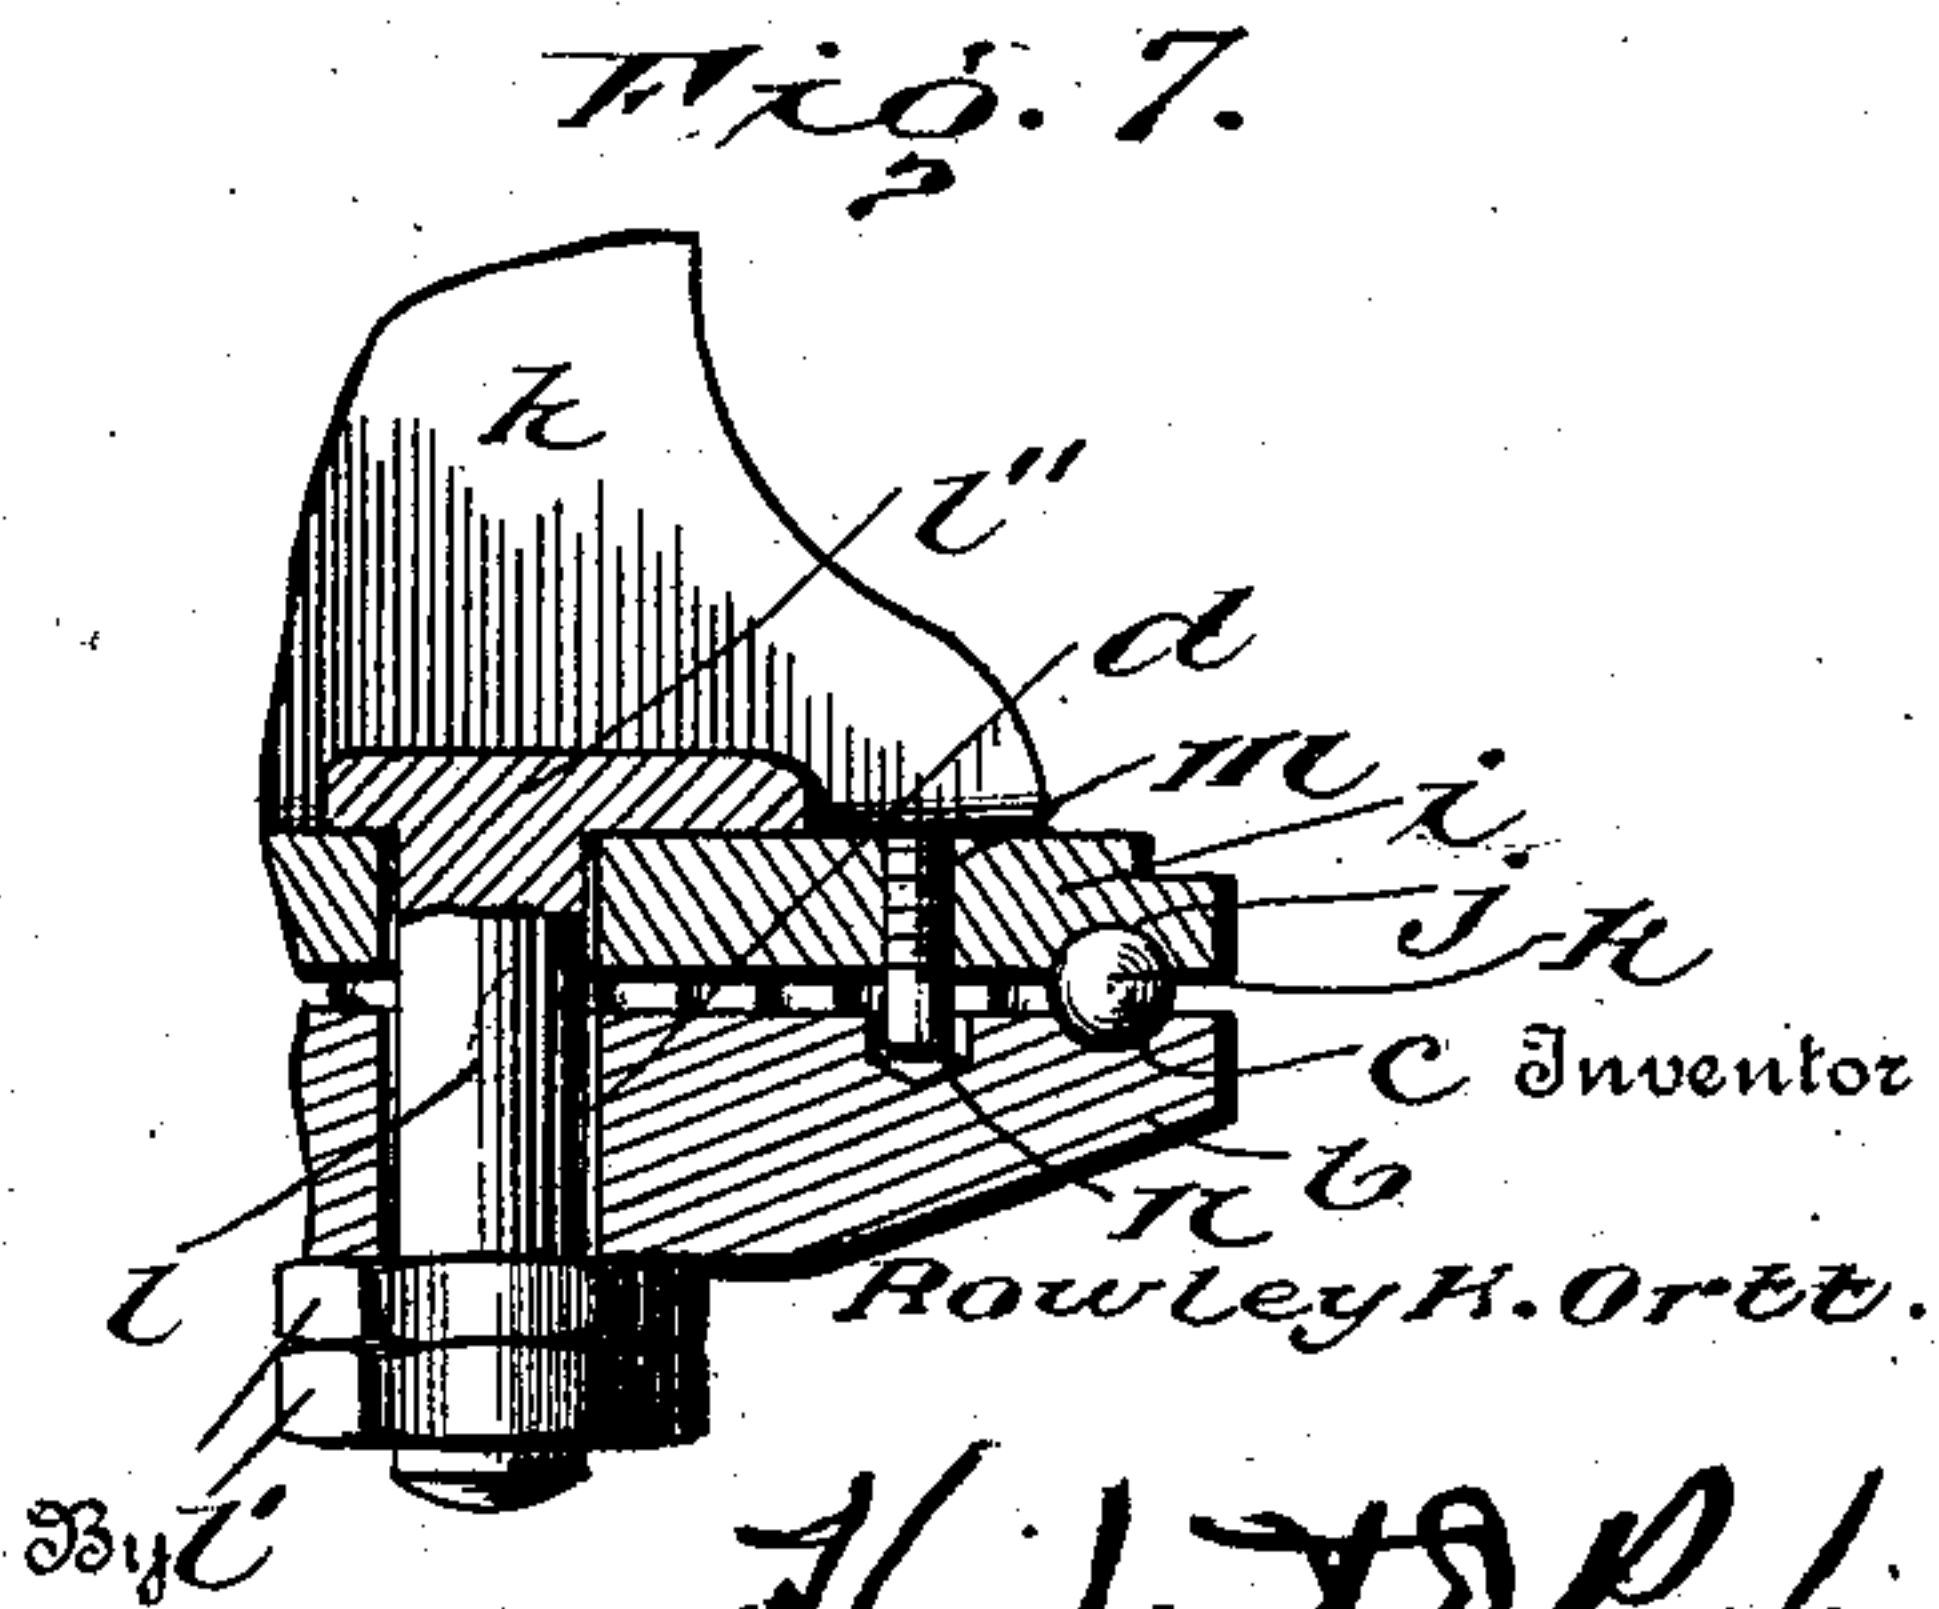 Fig. 7.
k
l"
d
m
i
j
k
c
Inventor
b
n
l
Rowley K. Ortt.
By
l'